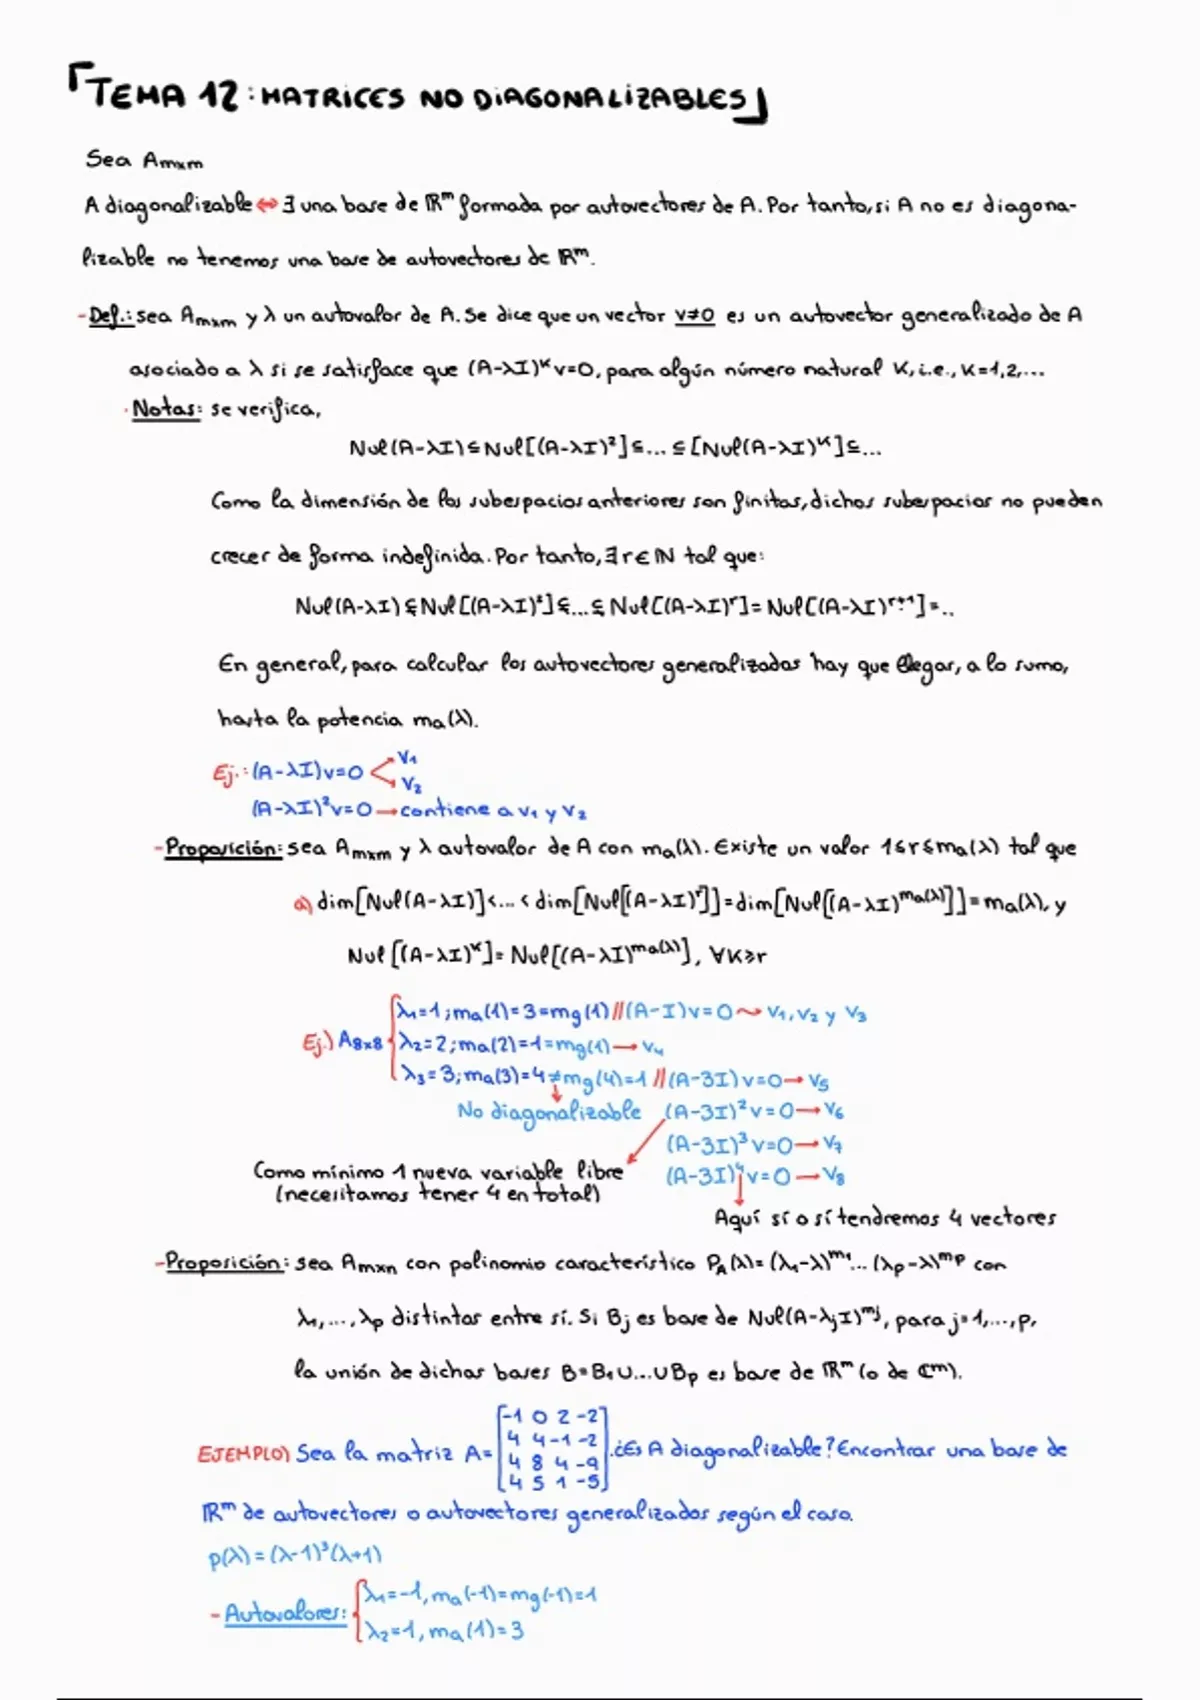 「TEMA 12: MATRICES NO DIAGONALIZABLES」
Sea Amxm
A diagonalizable ⇔ ∃ una base de ℝᵐ formada por autovectores de A. Por tanto, si A no es diagona-
lizable no tenemos una base de autovectores de ℝᵐ.
-Def.: sea Amxm y λ un autovalor de A. Se dice que un vector v≠0 es un autovector generalizado de A
asociado a λ si se satisface que (A-λI)ᴷv=0, para algún número natural K, i.e., K=1,2,...
·Notas: se verifica,
Nul(A-λI) ⊆ Nul[(A-λI)²] ⊆ ... ⊆ [Nul(A-λI)ᴷ] ⊆ ...
Como la dimensión de los subespacios anteriores son finitas, dichos subespacios no pueden
crecer de forma indefinida. Por tanto, ∃ r ∈ ℕ tal que:
Nul(A-λI) ⊊ Nul[(A-λI)²] ⊊ ... ⊊ Nul[(A-λI)ʳ] = Nul[(A-λI)ʳ⁺¹] = ..
En general, para calcular los autovectores generalizados hay que llegar, a lo sumo,
hasta la potencia ma(λ).
Ej.: (A-λI)v=0 < v₁ v₂
(A-λI)²v=0 → contiene a v₁ y v₂
-Proposición: sea Amxm y λ autovalor de A con ma(λ). Existe un valor 1≤r≤ma(λ) tal que
a) dim[Nul(A-λI)] < ... < dim[Nul[(A-λI)ʳ]] = dim[Nul[(A-λI)^ma(λ)]] = ma(λ), y
Nul[(A-λI)ᴷ] = Nul[(A-λI)^ma(λ)], ∀K≥r
Ej.) A8x8 { λ₁=1; ma(1)=3=mg(1) // (A-I)v=0 ⤳ v₁, v₂ y v₃
λ₂=2; ma(2)=1=mg(1) → v₄
λ₃=3; ma(3)=4≠mg(4)=1 // (A-3I)v=0 → v₅
No diagonalizable (A-3I)²v=0 → v₆
(A-3I)³v=0 → v₇
Como mínimo 1 nueva variable libre (A-3I)⁴v=0 → v₈
(necesitamos tener 4 en total)
Aquí sí o sí tendremos 4 vectores
-Proposición: sea Amxn con polinomio característico P_A(λ)=(λ₁-λ)^m₁...(λp-λ)^mp con
λ₁,...,λp distintos entre sí. Si Bj es base de Nul(A-λjI)^mj, para j=1,...,p,
la unión de dichas bases B=B₁∪...∪Bp es base de ℝᵐ (o de ℂᵐ).
EJEMPLO) Sea la matriz A= [-1 0 2 -2
4 4 -1 -2
4 8 4 -9
4 5 1 -5] .¿Es A diagonalizable? Encontrar una base de
ℝᵐ de autovectores o autovectores generalizados según el caso.
p(λ)=(λ-1)³(λ+1)
- Autovalores: { λ₁=-1, ma(-1)=mg(-1)=1
λ₂=1, ma(1)=3